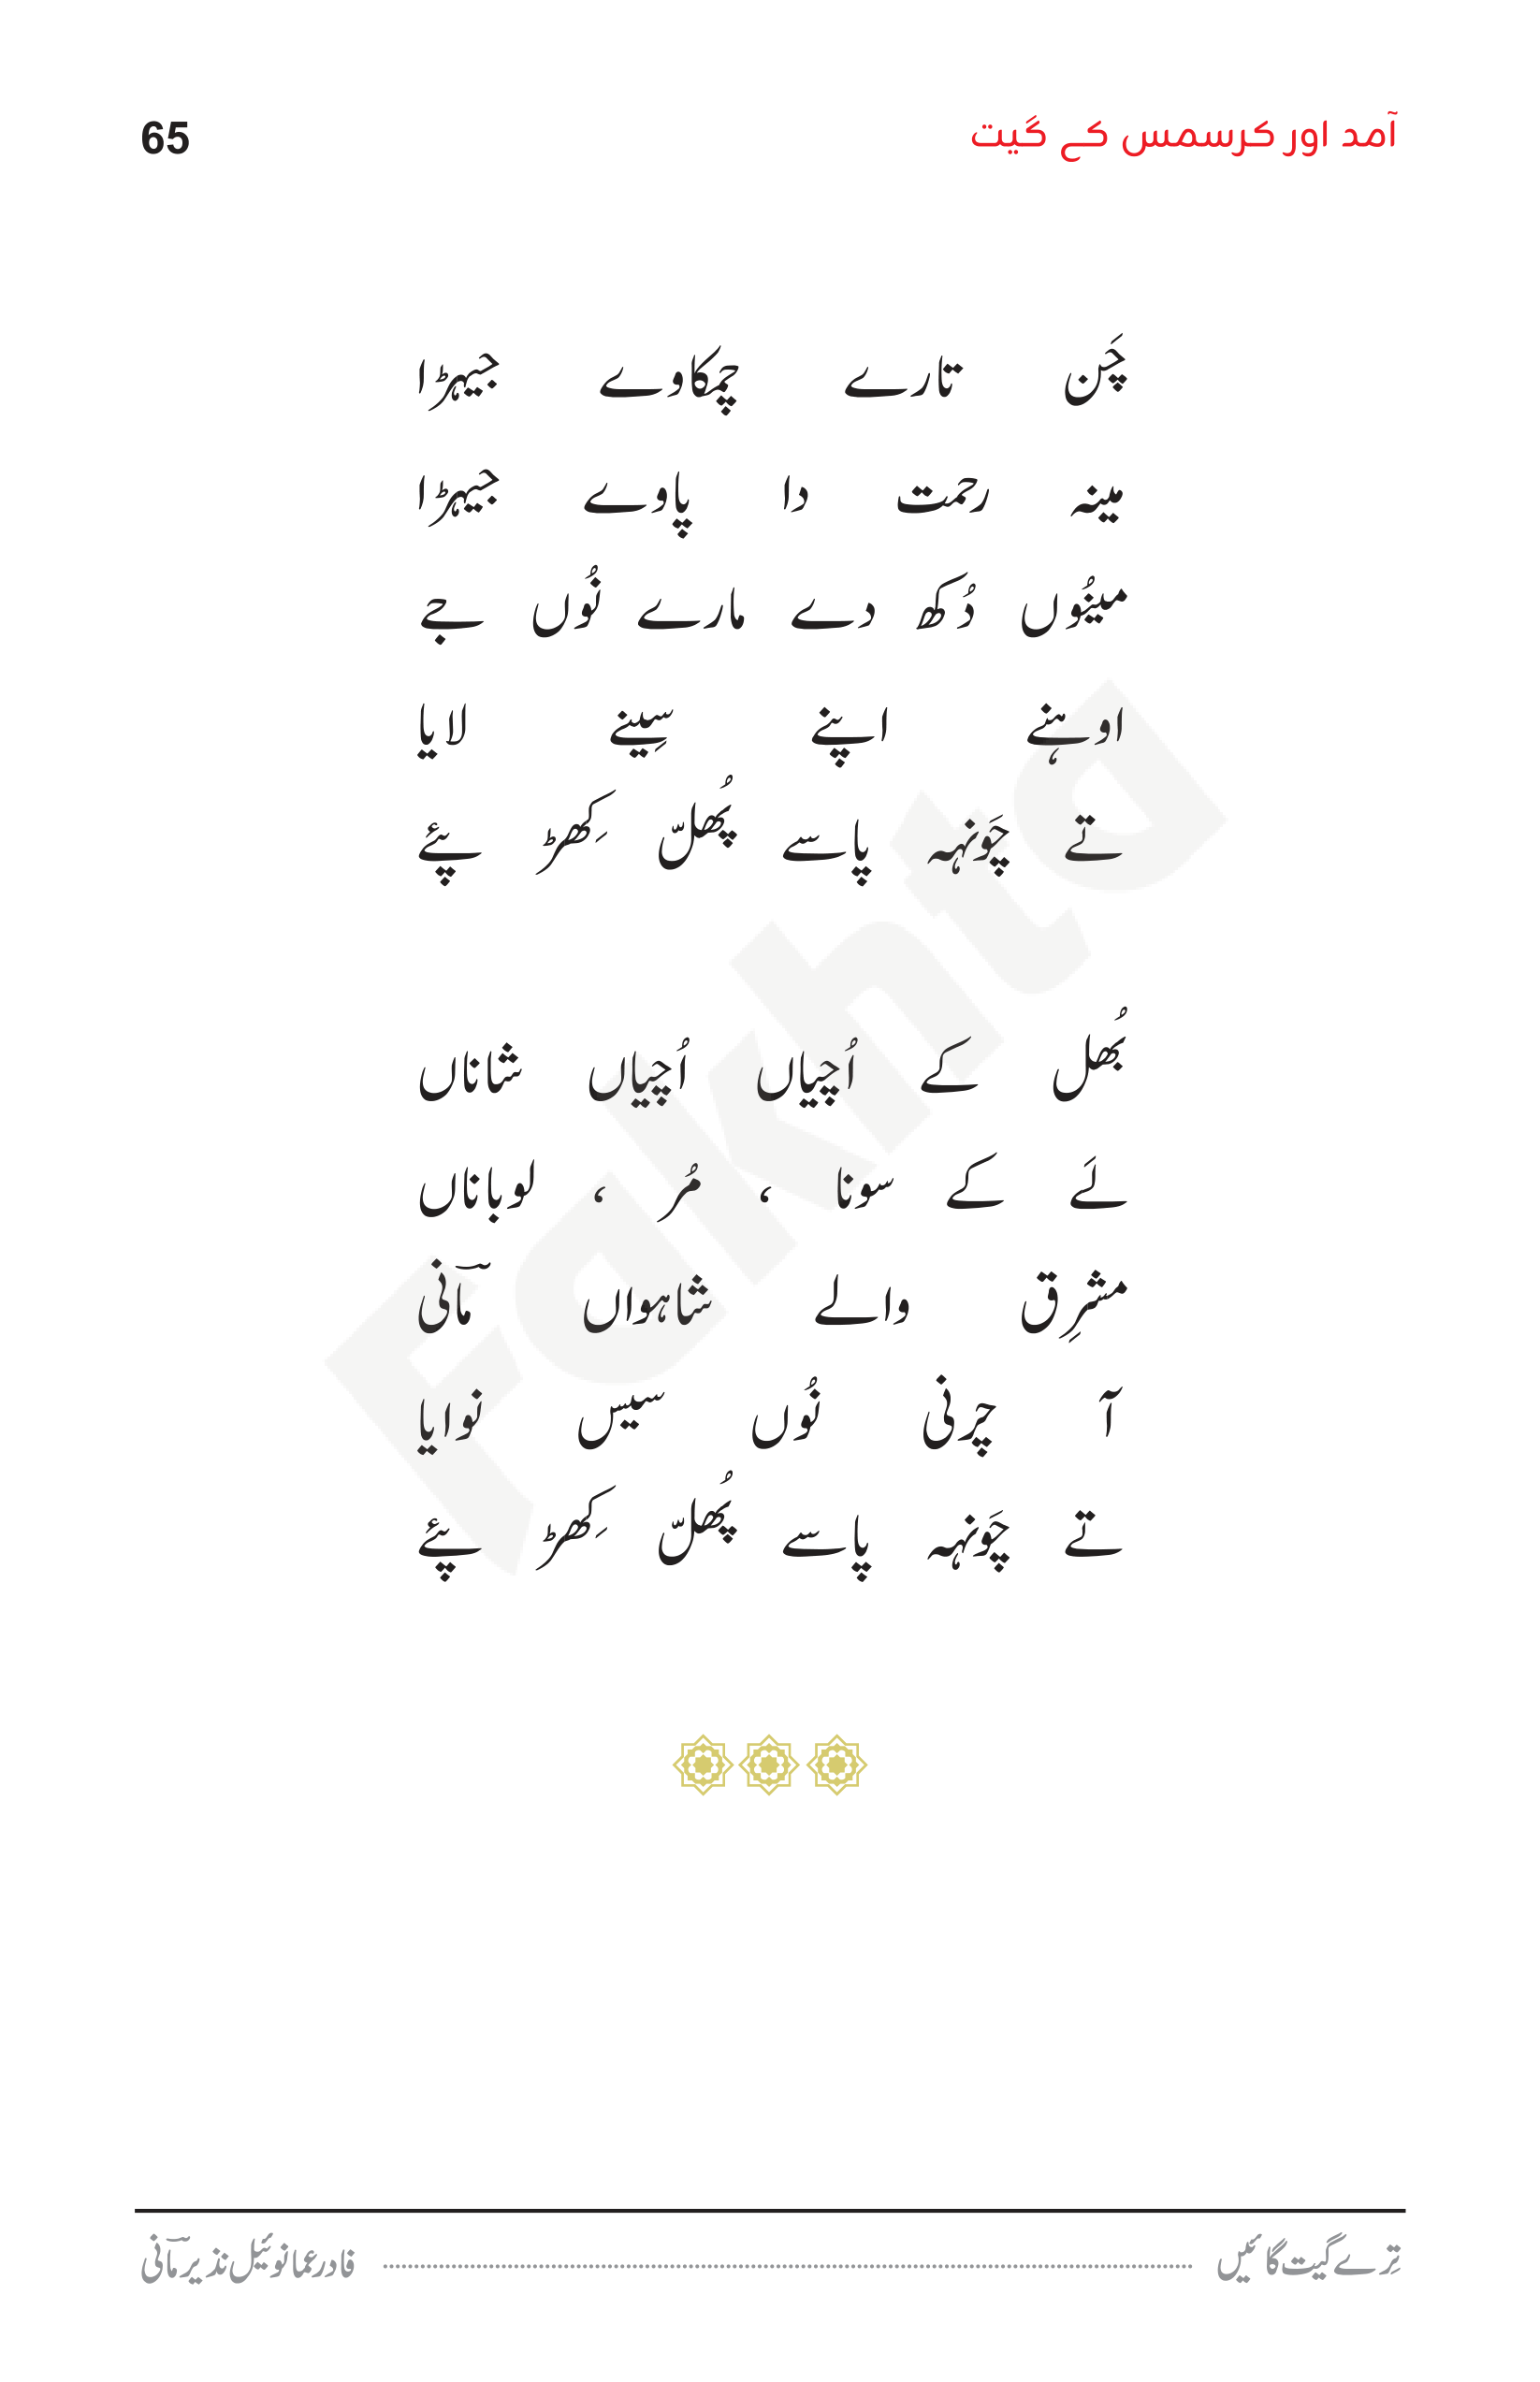 آمد اور کرسمس کے گیت
65
چَن تارے چمکاوے جیہڑا
مینہ رحمت دا پاوے جیہڑا
مینُوں دُکھ دے مارے نُوں جے
اوہنے اپنے سِینے لایا
تے چَونہہ پاسے پُھلّ کِھڑ پئے
بُھل کے اُچیاں اُچیاں شاناں
لَے کے سونا ، مُر ، لوباناں
مشرِق والے شاہواں مانؔی
آ چَرنی نُوں سیس نوایا
تے چَونہہ پاسے پُھلّ کِھڑ پئے
Fakhta
تِرے گیت گائیں
فادر عمانوئیل نذیر مانؔی